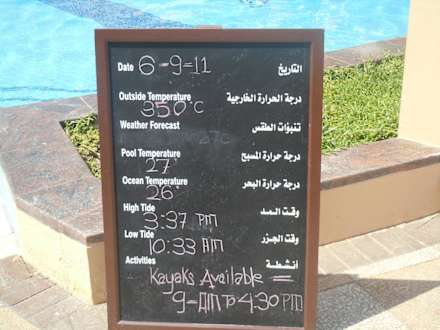 Date 6-9-11 التاريخ
Outside Temperature درجة الحرارة الخارجية
350°C
Weather Forecast تنبؤات الطقس
27c
Pool Temperature درجة حرارة المسبح
27°
Ocean Temperature درجة حرارة البحر
26°
High Tide وقت المد
3:37 PM
Low Tide وقت الجزر
10:33 AM
Activities أنشطة
Kayaks Available =
9-AM To 4:30 PM